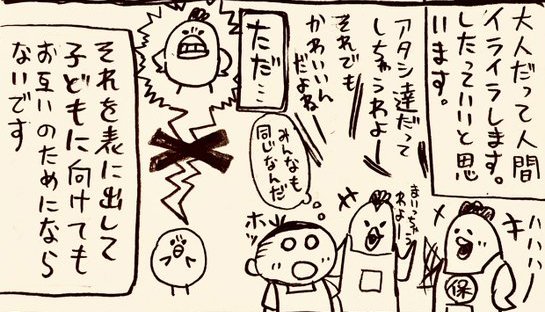 大人だって人間
イライラします。
したっていいと思
います。
アタシ達だって
しちゃうわよー
それでも
かわいいん
だよね
ハハハ!
まいっちゃう
わよー
みんなも
同じなんだ
ホッ
保
ただ…
それを表に出して
子どもに向けても
お互いのためになら
ないです